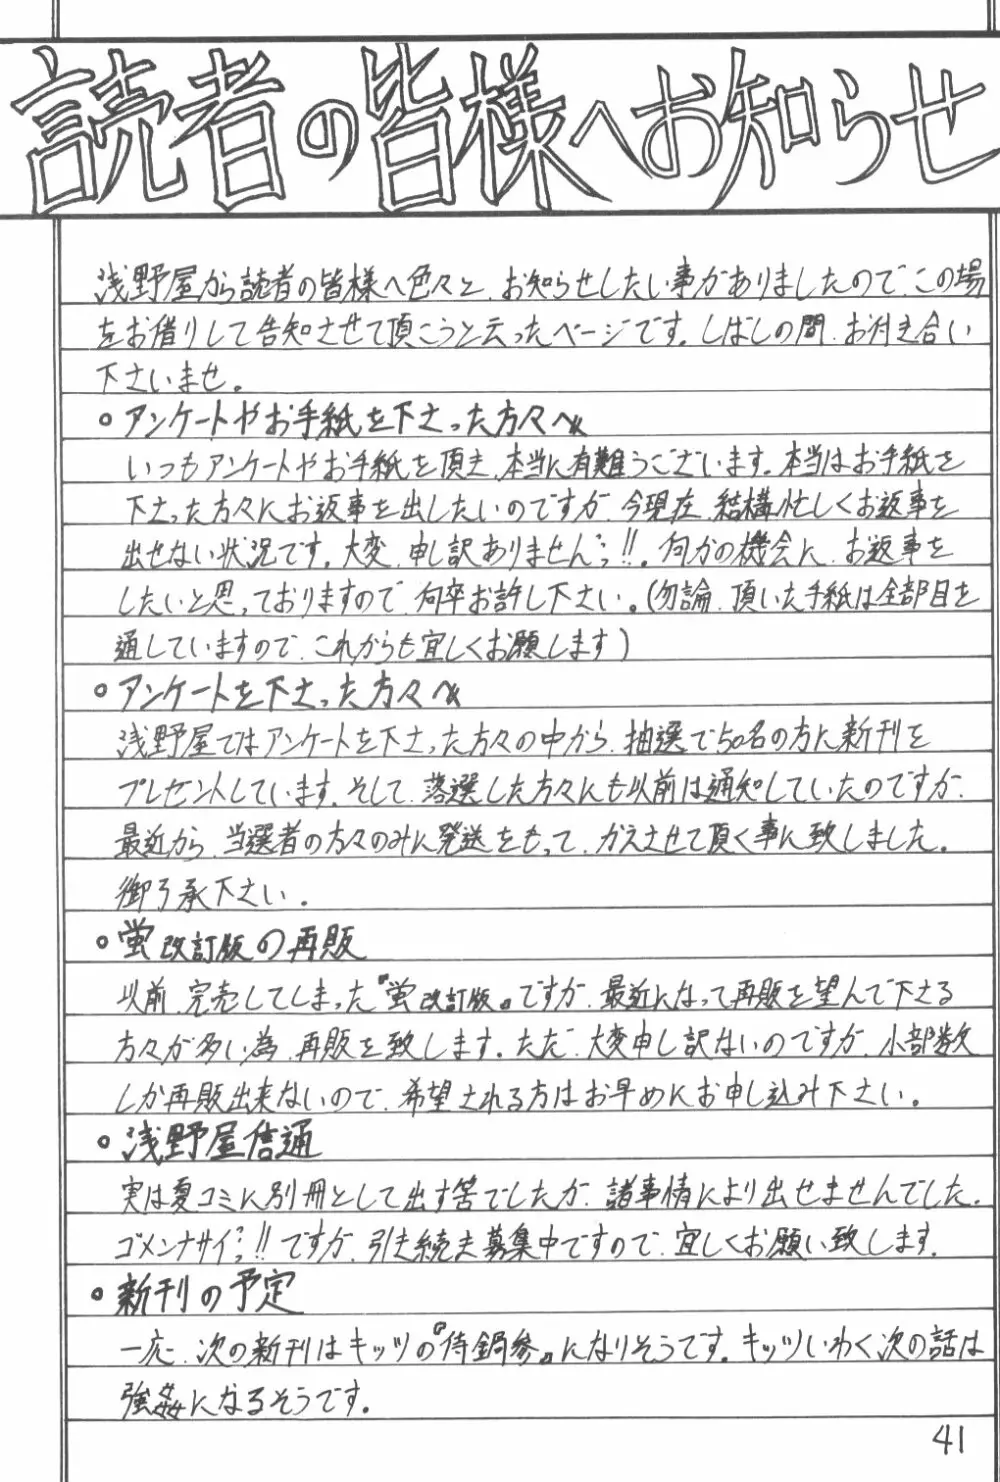 読者の皆様へお知らせ
浅野屋から読者の皆様へ色々と、お知らせしたい事がありましたので、この場
をお借りして告知させて頂こうと云ったページです。しばしの間、お付き合い
下さいませ。
○アンケートやお手紙を下さった方々へ
いつもアンケートやお手紙を頂き、本当に有難うございます。本当はお手紙を
下さった方々にお返事を出したいのですが、今現在、結構忙しくお返事を
出せない状況です。大変、申し訳ありませんっ!!。何かの機会に、お返事を
したいと思っておりますので、何卒お許し下さい。(勿論、頂いた手紙は全部目を
通していますので、これからも宜しくお願します)
○アンケートを下さった方々へ
浅野屋ではアンケートを下さった方々の中から、抽選で50名の方に新刊を
プレゼントしています。そして、落選した方々にも以前は通知していたのですが、
最近から、当選者の方々のみに発送をもって、かえさせて頂く事に致しました。
御了承下さい。
○蛍改訂版の再販
以前、完売してしまった『蛍改訂版』ですが、最近になって再販を望んで下さる
方々が多い為、再販を致します。ただ、大変申し訳ないのですが、小部数
しか再販出来ないので、希望される方はお早めにお申し込み下さい。
○浅野屋信通
実は夏コミに別冊として出す筈でしたが、諸事情により出せませんでした。
ゴメンナサイっ!!ですが、引き続き募集中ですので、宜しくお願い致します。
○新刊の予定
一応、次の新刊はキッツの『侍鍋参』になりそうです。キッツいわく次の話は
強姦になるそうです。
41